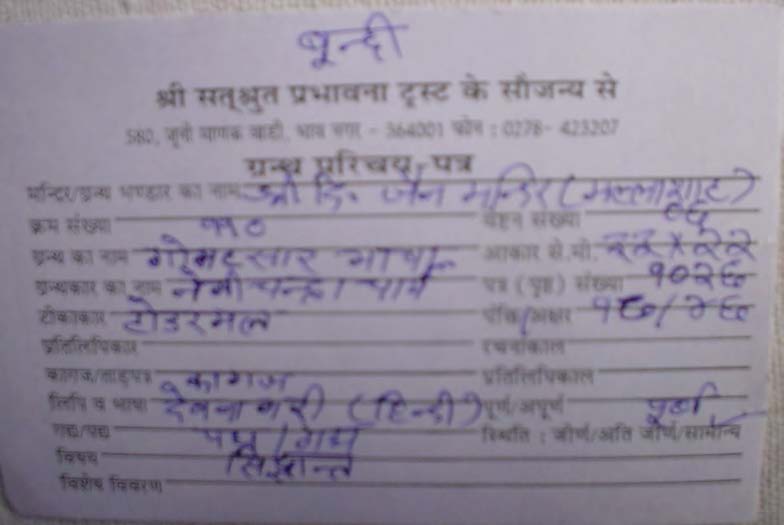 बून्दी
श्री सत्श्रुत प्रभावना ट्रस्ट के सौजन्य से
580, जूनी माणक वाडी, भाव नगर - 364001 फोन : 0278- 423207
ग्रन्थ परिचय-पत्र
मन्दिर/ग्रन्थ भण्डार का नाम श्री दि. जैन मन्दिर
क्रम संख्या ११० वेष्टन संख्या
ग्रन्थ का नाम गोमटसार भाषा आकार से.मी.
ग्रन्थकार का नाम नेमीचन्द्राचार्य पत्र (पृष्ठ) संख्या १०२६
टीकाकार टोडरमल पंक्ति/अक्षर १६/४६
प्रतिलिपिकार रचनाकाल
कागज/ताड़पत्र कागज प्रतिलिपिकाल
लिपि व भाषा देवनागरी (हिन्दी) पूर्ण/अपूर्ण पूर्ण
गद्य/पद्य पद्य/गद्य स्थिति : जीर्ण/अति जीर्ण/सामान्य
विषय सिद्धान्त
विशेष विवरण